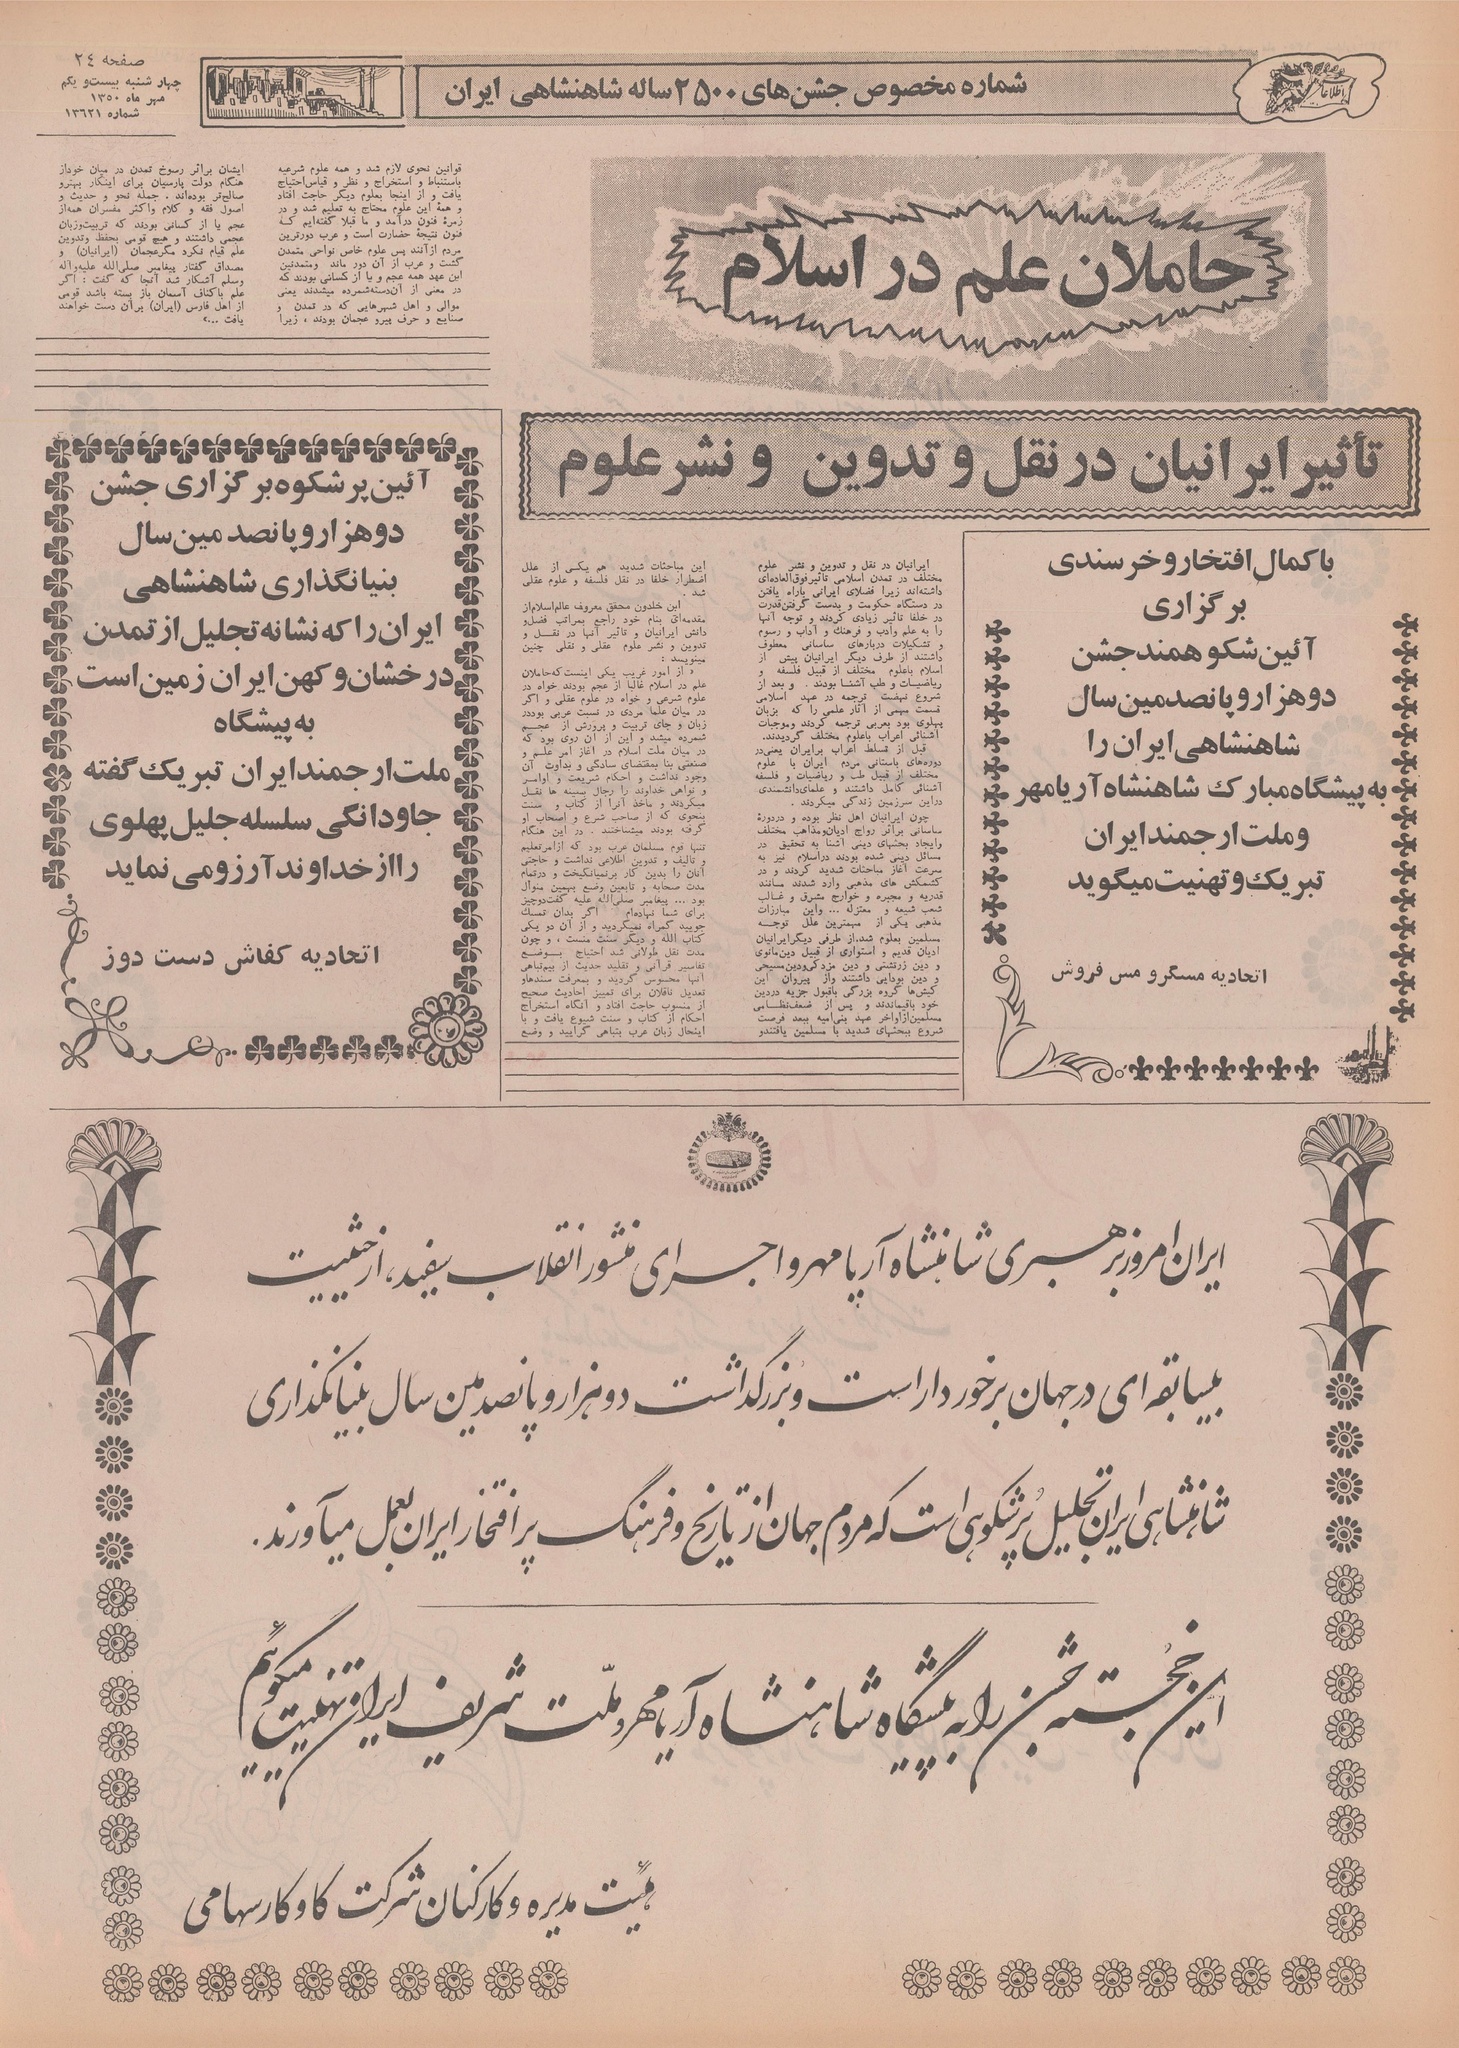 صفحه ۲۴
چهار شنبه بیست و یکم
مهر ماه ۱۳۵۰
شماره ۱۳۶۳۱
شماره مخصوص جشن‌های ۲۵۰۰ ساله شاهنشاهی ایران
اطلاعات
حاملان علم در اسلام
تأثیر ایرانیان در نقل و تدوین و نشر علوم
ایرانیان در نقل و تدوین و نشر علوم
مختلف در تمدن اسلامی تاثیر فوق‌العاده‌ای
داشته‌اند زیرا فضلای ایرانی باراه یافتن
در دستگاه حکومت و بدست گرفتن قدرت
در خلفا تاثیر زیادی کردند و توجه آنها
را به علم وادب و فرهنك و آداب و رسوم
و تشکیلات دربارهای ساسانی معطوف
داشتند از طرف دیگر ایرانیان پیش از
اسلام باعلوم مختلف از قبیل فلسفه و
ریاضیات و طب آشنا بودند . و بعد از
شروع نهضت ترجمه در عهد اسلامی
قسمت مهمی از آثار علمی را که بزبان
پهلوی بود بعربی ترجمه کردند وموجبات
آشنائی اعراب باعلوم مختلف گردیدند.
قبل از تسلط اعراب برایران یعنی‌در
دوره‌های باستانی مردم ایران با علوم
مختلف از قبیل طب و ریاضیات و فلسفه
آشنائی کامل داشتند و علمای‌دانشمندی
دراین سرزمین زندگی میکردند .
چون ایرانیان اهل نظر بوده و دردورهٔ
ساسانی براثر رواج ادیان‌ومذاهب مختلف
وایجاد بحثهای دینی آشنا به تحقیق در
مسائل دینی شده بودند دراسلام نیز به
سرعت آغاز مباحثات شدید کردند و در
کشمکش های مذهبی وارد شدند مانند
قدریه و مجبره و خوارج مشرق و غالب
شعب شیعه و معتزله ... واین مبارزات
مذهبی یکی از مهمترین علل توجه
مسلمین بعلوم شد.از طرفی دیگرایرانیان
ادیان قدیم و استواری از قبیل دین‌مانوی
و دین زرتشتی و دین مزدکی‌ودین‌مسیحی
و دین بودایی داشتند واز پیروان این
کیش‌ها گروه بزرگی باقبول جزیه دردین
خود باقیماندند و پس از ضعف‌نظامی
مسلمین‌ازاواخر عهد بنی‌امیه ببعد فرصت
شروع ببحثهای شدید با مسلمین یافتندو
این مباحثات شدید هم یکی از علل
اضطرار خلفا در نقل فلسفه و علوم عقلی
شد .
ابن خلدون محقق معروف عالم‌اسلام‌از
مقدمه‌ائی بنام خود راجع بمراتب فضل‌و
دانش ایرانیان و تاثیر آنها در نقل و
تدوین و نشر علوم عقلی و نقلی چنین
مینویسد :
« از امور غریب یکی اینست که‌حاملان
علم در اسلام غالبا از عجم بودند خواه در
علوم شرعی و خواه در علوم عقلی و اگر
در میان علما مردی در نسبت عربی بوددر
زبان و جای تربیت و پرورش از عجم
شمرده میشد و این از آن روی بود که
در میان ملت اسلام در آغاز امر علم و
صنعتی بنا بمقتضای سادگی و بداوت آن
وجود نداشت و احکام شریعت و اوامر
و نواهی خداوند را رجال بسینه ها نقل
میکردند و ماخذ آنرا از کتاب و سنت
بنحوی که از صاحب شرع و اصحاب او
گرفته بودند میشناختند . در این هنگام
تنها قوم مسلمان عرب بود که ازامرتعلیم
و تالیف و تدوین اطلاعی نداشت و حاجتی
آنان را بدین کار برنمیانگیخت و درتمام
مدت صحابه و تابعین وضع بهمین منوال
بود ... پیغامبر صلی‌الله علیه گفت‌دوچیز
برای شما نهاده‌ام اگر بدان تمسك
جویید گمراه نمیگردید و از آن دو یکی
کتاب الله و دیگر سنت منست ، و چون
مدت نقل طولانی شد احتیاج بوضع
تفاسیر قرآنی و تقلید حدیث از بیم‌تباهی
آنها محسوس گردید و بمعرفت سندهاو
تعدیل ناقلان برای تمییز احادیث صحیح
از منسوب حاجت افتاد و آنگاه استخراج
احکام از کتاب و سنت شیوع یافت و با
اینحال زبان عرب بتباهی گرایید و وضع
قوانین نحوی لازم شد و همه علوم شرعیه
باستنباط و استخراج و نظر و قیاس‌احتیاج
یافت و از اینجا بعلوم دیگر حاجت افتاد
و همهٔ این علوم محتاج به تعلیم شد و در
زمرهٔ فنون درآمد و ما قبلا گفته‌ایم که
فنون نتیجهٔ حضارت است و عرب دورترین
مردم ازآنند پس علوم خاص نواحی متمدن
گشت و عرب از آن دور ماند ومتمدنین
این عهد همه عجم و یا از کسانی بودند که
در معنی از آن‌دسته‌شمرده میشدند یعنی
موالی و اهل شهرهایی که در تمدن و
صنایع و حرف پیرو عجمان بودند ، زیرا
ایشان براثر رسوخ تمدن در میان خوداز
هنگام دولت پارسیان برای اینکار بهترو
صالح‌تر بوده‌اند . جمله نحو و حدیث و
اصول فقه و کلام واکثر مفسران همه‌از
عجم یا از کسانی بودند که تربیت‌وزبان
عجمی داشتند و هیچ قومی بحفظ وتدوین
علم قیام نکرد مگرعجمان (ایرانیان) و
مصداق گفتار پیغامبر صلی‌الله علیه‌واله
وسلم آشکار شد آنجا که گفت : اگر
علم باکناف آسمان باز بسته باشد قومی
از اهل فارس (ایران) بران دست خواهند
یافت ...»
با کمال افتخار و خرسندی
برگزاری
آئین شکوهمند جشن
دوهزار و پانصدمین سال
شاهنشاهی ایران را
به پیشگاه مبارك شاهنشاه آریامهر
و ملت ارجمند ایران
تبریك و تهنیت میگوید
اتحادیه مسگر و مس فروش
آئین پر شکوه برگزاری جشن
دوهزار و پانصدمین سال
بنیانگذاری شاهنشاهی
ایران را که نشانه تجلیل از تمدن
درخشان و کهن ایران زمین است
به پیشگاه
ملت ارجمند ایران تبریك گفته
جاودانگی سلسله جلیل پهلوی
را از خداوند آرزو می نماید
اتحادیه کفاش دست دوز
ایران امروز برهبری شاهنشاه آریامهر و اجرای منشور انقلاب سفید، از حیثیت
بیسابقه ای در جهان برخوردار است و بزرگداشت دوهزار و پانصدمین سال بنیانگذاری
شاهنشاهی ایران تجلیل پرشکوهی است که مردم جهان از تاریخ و فرهنگ پر افتخار ایران بعمل میآورند.
این خجسته جشن را به پیشگاه شاهنشاه آریامهر و ملّت شریف ایران تهنیت میگوئیم
هیئت مدیره و کارکنان شرکت کاوکار سهامی